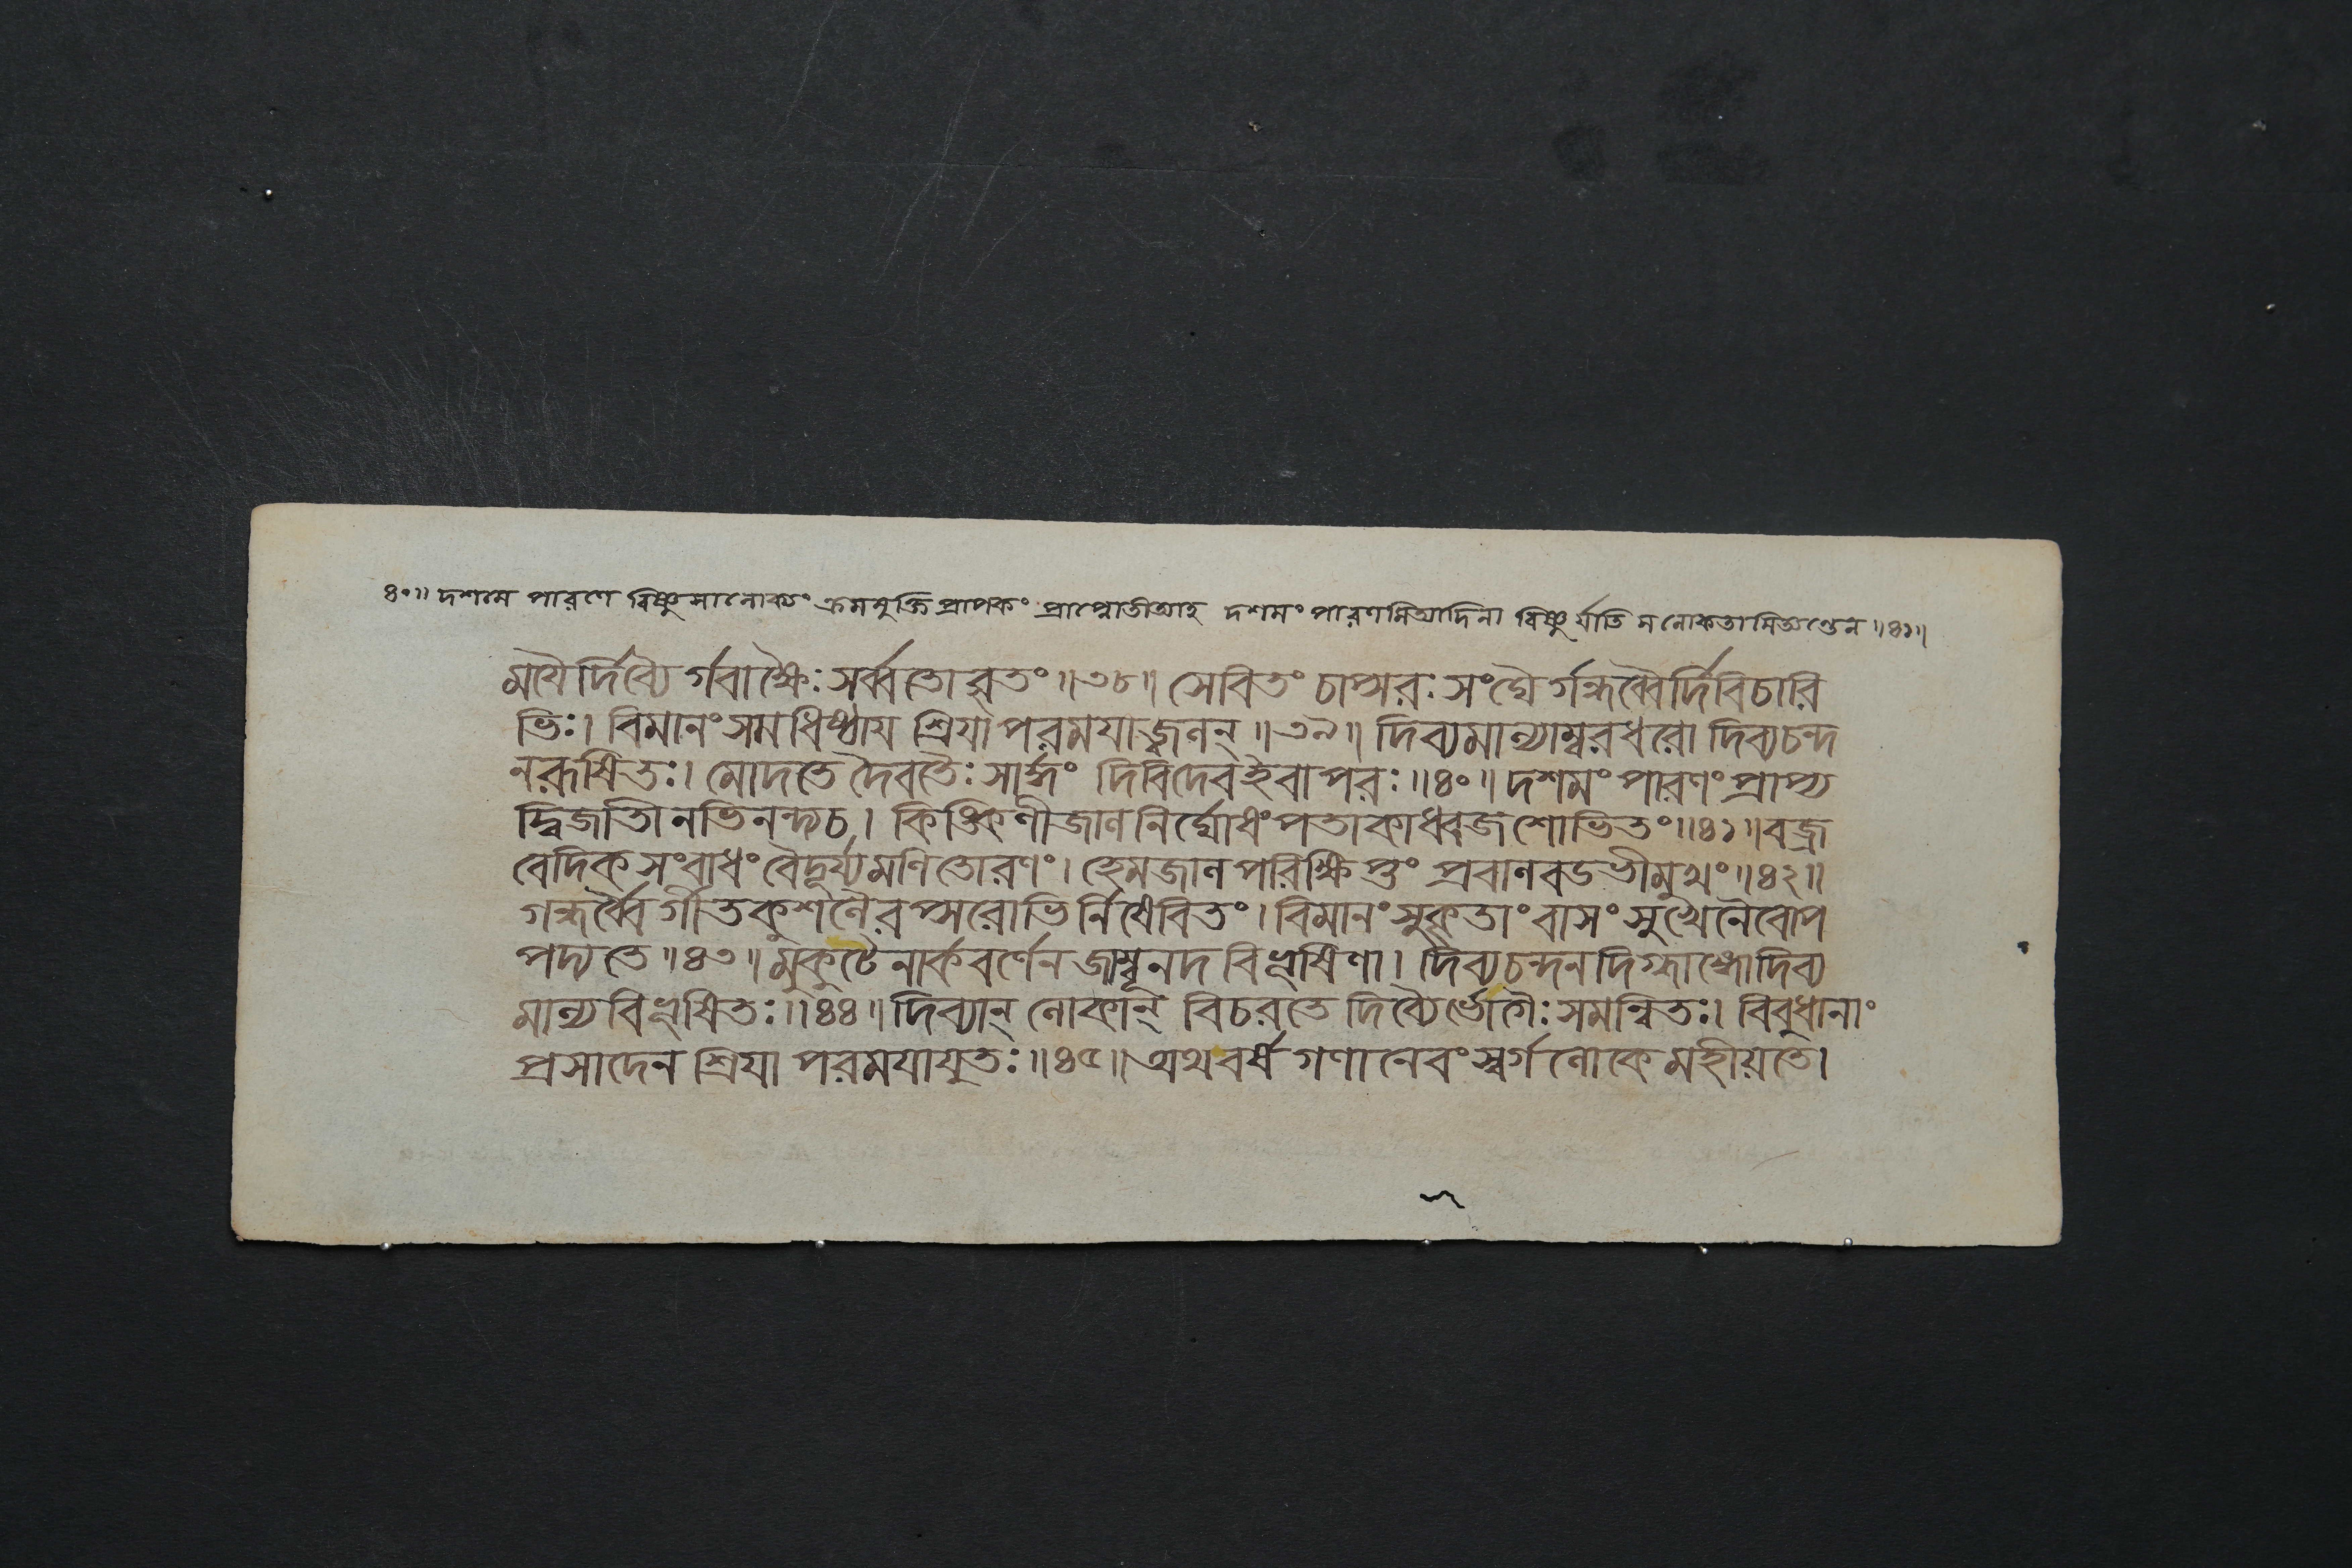 ৪০॥ দশমে পারণে বিষ্ণুসালোক্যং ক্রমমুক্তিপ্রাপকং প্রাপ্নোতীত্যাহ দশমং পারণমিত্যাদিনা বিষ্ণুর্যাতি সলোকতামিত্যন্তেন ॥৪১॥
ময়ৈর্দিব্যৈর্গবাক্ষৈঃ সর্ব্বতোবৃতং ॥৩৮॥ সেবিতং চাপ্সরঃ সংঘৈর্গন্ধর্ব্বৈর্দিবিচারি
ভিঃ। বিমানং সমধিষ্ঠায় শ্রিয়া পরময়াজ্বলন্ ॥৩৯॥ দিব্যমাল্যাম্বরধরো দিব্যচন্দ
নরূষিতঃ। মোদতে দৈবতৈঃ সার্দ্ধং দিবিদেবইবাপরঃ ॥৪০॥ দশমং পারণং প্রাপ্য
দ্বিজাতীনভিনন্দ্যচ। কিঙ্কিণীজালনির্ঘোষং পতাকাধ্বজশোভিতং ॥৪১॥ বজ্র
বেদিকসংবাধং বৈদূর্য্যমণিতোরণং। হেমজালপরিক্ষিপ্তং প্রবালবডভীমুখং ॥৪২॥
গন্ধর্ব্বৈর্গীতকুশলৈরপ্সরোভির্নিষেবিতং। বিমানং সুকৃতাং বাসং সুখেনৈবোপ
পদ্যতে ॥৪৩॥ মুকুটেনার্কবর্ণেন জাম্বূনদবিভূষিণা। দিব্যচন্দনদিগ্ধাঙ্গোদিব্য
মাল্যবিভূষিতঃ ॥৪৪॥ দিব্যান্ লোকান্ বিচরতে দিব্যৈর্ভোগৈঃ সমন্বিতঃ। বিবুধানাং
প্রসাদেন শ্রিয়া পরময়াযুতঃ ॥৪৫॥ অথবর্ষগণানেবং স্বর্গলোকে মহীয়তে।